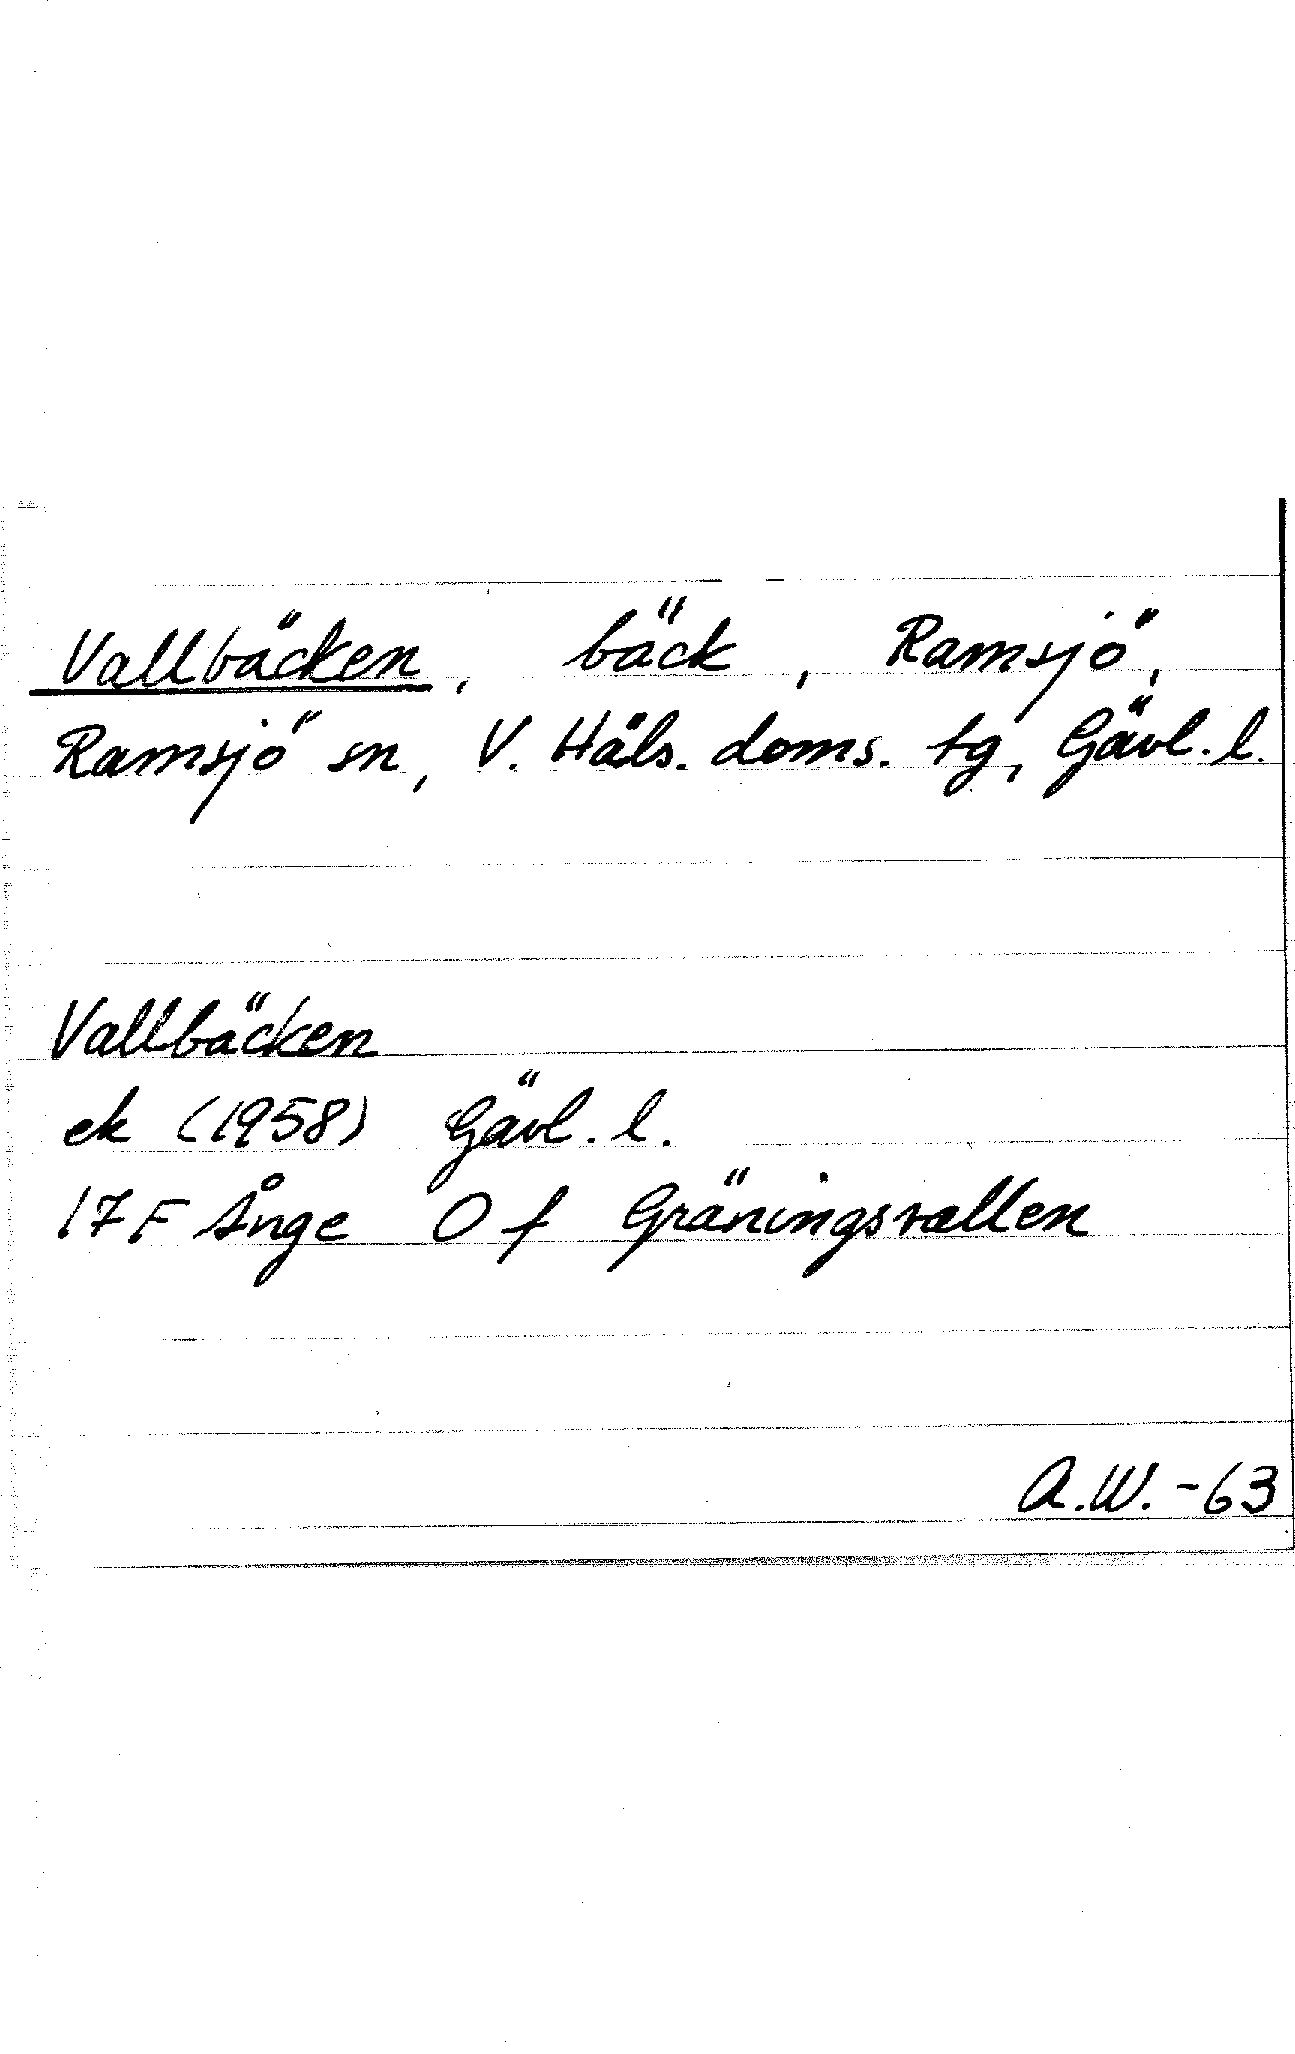 Vallbäcken, bäck, Ramsjö,
Ramsjö sn, V. Häls. doms. tg, Gävl. l.
Vallbäcken
ek (1958) Gävl. l.
17F Ånge O f Gräningsvallen
A.W. -63